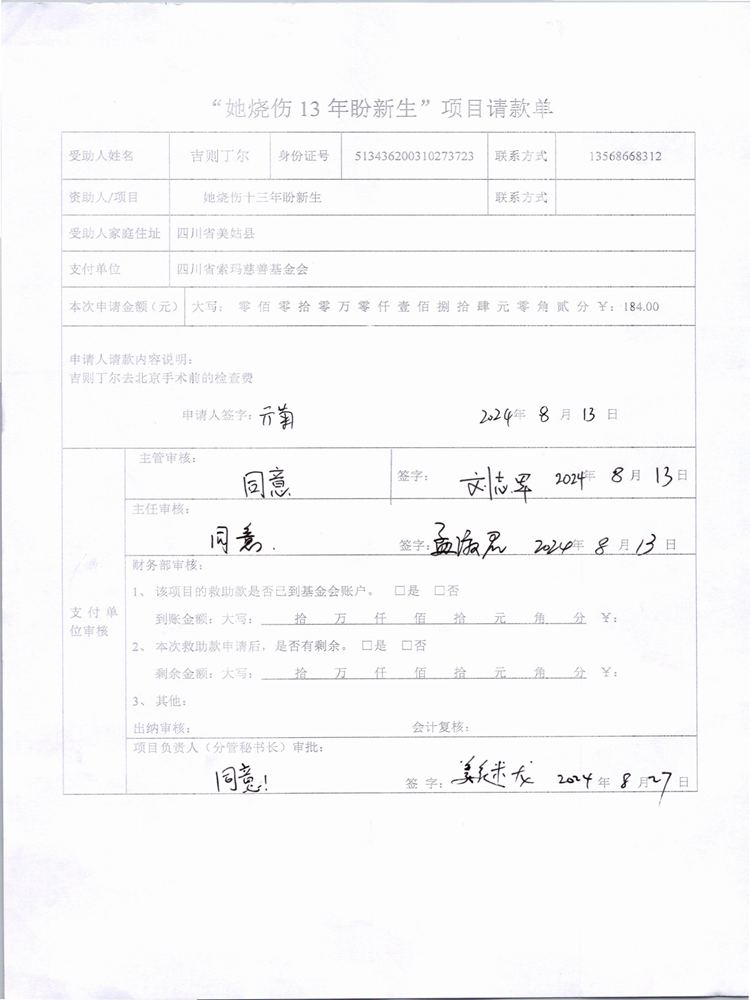 “她烧伤13年盼新生”项目请款单
受助人姓名 吉则丁尔 身份证号 513436200310273723 联系方式 13568668312
资助人/项目 她烧伤十三年盼新生 联系方式
受助人家庭住址 四川省美姑县
支付单位 四川省索玛慈善基金会
本次申请金额（元） 大写： 零佰零拾零万零仟壹佰捌拾肆元零角贰分 ￥：184.00
申请人请款内容说明：
吉则丁尔去北京手术前的检查费
申请人签字： 2024年 8月 13日
主管审核：
同意 签字： 2024年 8月 13日
主任审核：
同意. 签字： 2024年 8月 13日
财务部审核：
1、 该项目的救助款是否已到基金会账户。 □是 □否
到账金额：大写： 拾 万 仟 佰 拾 元 角 分 ￥：
支付单位审核
2、 本次救助款申请后，是否有剩余。□是 □否
剩余金额：大写： 拾 万 仟 佰 拾 元 角 分 ￥：
3、 其他：
出纳审核： 会计复核：
项目负责人（分管秘书长）审批：
同意! 签 字： 2024年 8月27日